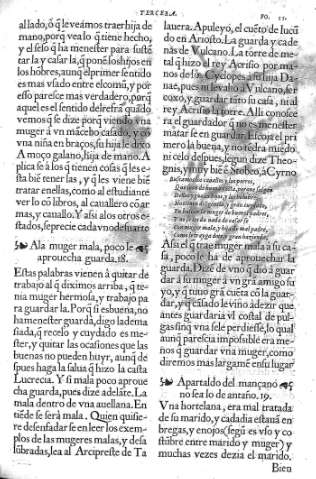 TERCERA.
FO. 55.
al lado, ò q̃ le veámos traer hija de
mano, porq̃ vea lo q̃ tiene hecho,
y el seso q̃ ha menester para suste
tar la y casar la, q̃ ponẽ los hijos en
los hõbres, aunq̃ el primer sentido
es mas vsado entre el comũ, y por
esso parece mas verdadero, porq̃
aquel es el sentido del refrã quãdo
vemos q̃ se dize por viendo vna
muger à vn mãcebo casado, y cõ
vna niña en braços, su hija le dizẽ
A moço galano, hija de mano. A
plica se à los q̃ tienen cosas q̃ les e-
sta biẽ tener las, y q̃ les viene biẽ
tratar en ellas, como al estudiantẽ
ver lo cõ libros, al cauallero cõ ar
mas, y cauallo. Y assi à los otros e-
stados, se precie cada vno de su arte
Ala muger mala, poco le
aprouecha guarda. 18.
Estas palabras vienen à quitar de
trabajo al q̃ diximos arriba, q̃ te-
nia muger hermosa, y trabajo pa
ra guardar la. Porq̃ si es buena, no
ha menester guarda, digo la dema
siada, q̃ recelo y cuydado es me-
ster, y quitar las ocasiones que las
buenas no pueden huyr, aunq̃ de
spues haga la salua q̃ hizo la casta
Lucrecia. Y si mala poco aproue
cha guarda, pues dize adelãte. La
mala dentro de vna auellana. En
tiẽde se serà mala. Quien quisie-
re desenfadar se en leer los exem-
plos de las mugeres malas, y desa
lũbradas, lea al Arcipreste de Ta
lauera. Apuleyo, el cuẽto de Iucũ
do en Ariosto. La guarda y cade
nàs de Vulcano. La torre de me-
tal q̃ hizo el rey Acrisio por ma-
nos de los Cyclopes à su hija Da-
nae, pues ni le valio à Vulcano, ser
coxo, y guardar tãto su casa, ni al
rey Acrisio la torre. Alli conosce
ra el guardador q̃ no es menester
matar se en guardar. Escoja el pri
mero la buena, y no tẽdra miedo,
ni celo despues, segun dize Theo-
gnis, y muy biẽ ẽ Stobeo, à Cyrno
Assi el q̃ trae muger mala à su ca-
sa, poco le ha de aprouechar la
guarda. Dizẽ de vno q̃ dio à guar
dar à su muger à vn grã amigo su
yo, y q̃ tuuo grã cuẽta cõ la guar-
dar, y q̃ el casado le vino à dezir que
antes guardaria vn costal de pul-
gas sinq̃ vna se le perdiesse, lo qual
aunq̃ parescia impossible era me-
nos q̃ guardar vna muger, como
diremos mas largamẽ en su lugar
Apartaldo del mançano
no sea lo de antaño. 19.
Vna hortelana, era mal tratada
de su marido, y cada dia estaua en
bregas, y enojos (segũ es vso y co
stũbre entre marido y muger) y
muchas vezes dezia el marido.
Bien